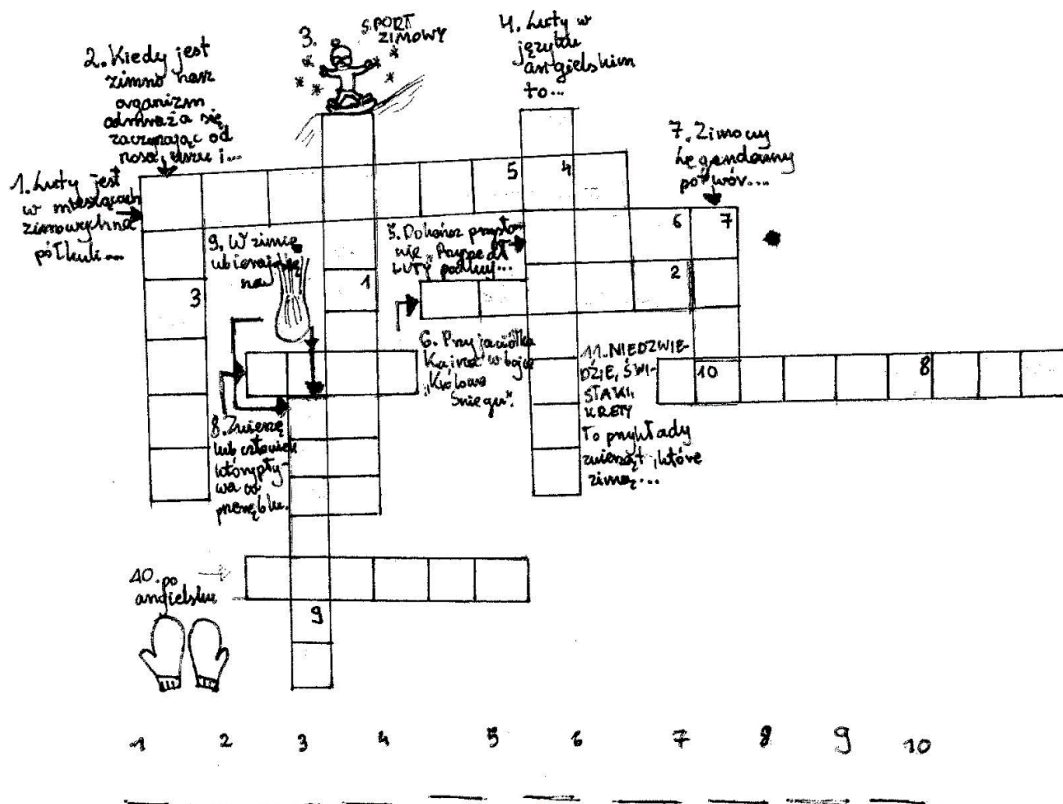 2. Kiedy jest
zimno nasz
organizm
odmraża się
zaczynając od
nosa, uszu i...
3.
SPORT
ZIMOWY
4. Luty w
języku
angielskim
to...
7. Zimowy
Legendarny
potwór...
1. Luty jest
w miesiącach
zimowych na
półkuli...
5 4
9. W zimie
ubieraj się
na
5. Dokończ przysło
wie
LUTY podkuj...
6 7
3
1
2
6. Przyjaciółka
Kaja w bajce
"Królowa
Śniegu".
11. NIEDZWIE-
DZIE, ŚWI-
STAKI,
KRETY
to przykłady
zwierząt, które
zimą...
10 8
8. Zwierzę
lub człowiek
który pły-
wa w
przeręblu.
10. po
angielsku
9
1 2 3 4 5 6 7 8 9 10